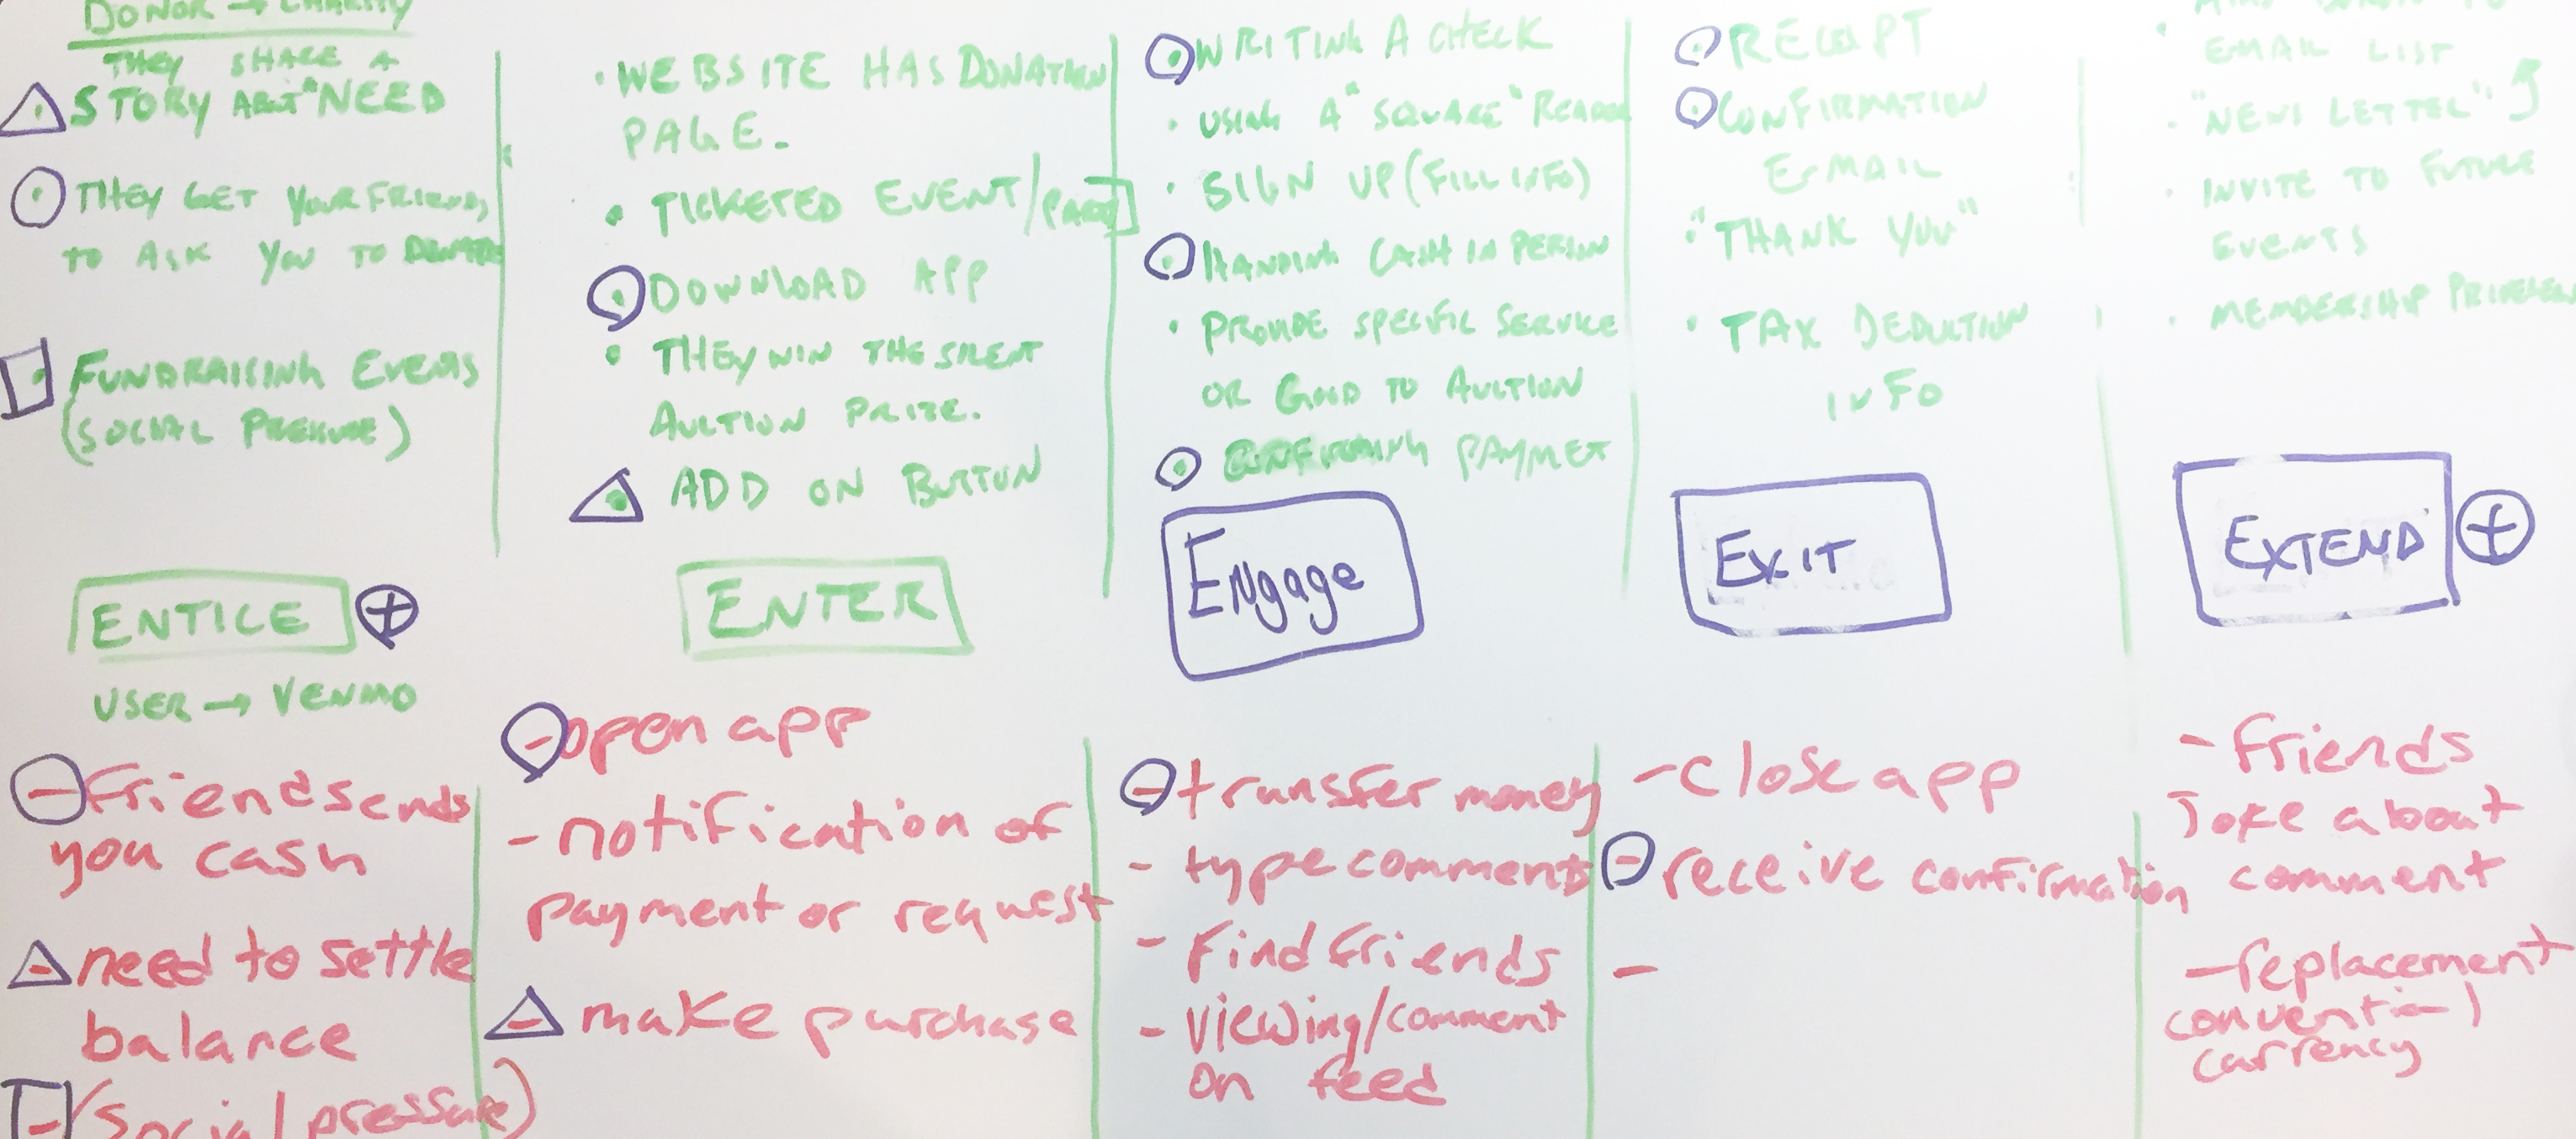 DONOR → CHARITY
THEY SHARE A
STORY ABT "NEED
THEY GET YOUR FRIENDS
TO ASK YOU TO DONATE
FUNDRAISING EVENTS
(SOCIAL PRESSURE)
• WEBSITE HAS DONATION
PAGE.
• TICKETED EVENT/PARTY
• DOWNLOAD APP
• THEY WIN THE SILENT
AUCTION PRIZE.
• ADD ON BUTTON
• WRITING A CHECK
• USING A "SQUARE" READER
• SIGN UP (FILL INFO)
• HANDING CASH IN PERSON
• PROVIDE SPECIFIC SERVICE
OR GOOD TO AUCTION
• CONFIRMING PAYMET
• RECEIPT
• CONFIRMATION
E-MAIL
• "THANK YOU"
• TAX DEDUCTION
INFO
EMAIL LIST
• "NEWS LETTER"
• INVITE TO FUTURE
EVENTS
• MEMBERSHIP
ENTICE +
ENTER
Engage
EXIT
EXTEND +
USER → VENMO
- friend sends
you cash
- need to settle
balance
- (social pressure)
- open app
- notification of
payment or request
- make purchase
- transfer money
- type comments
- find friends
- viewing/comment
on feed
- close app
- receive confirmation
-
- friends
joke about
comment
- replacement
currency